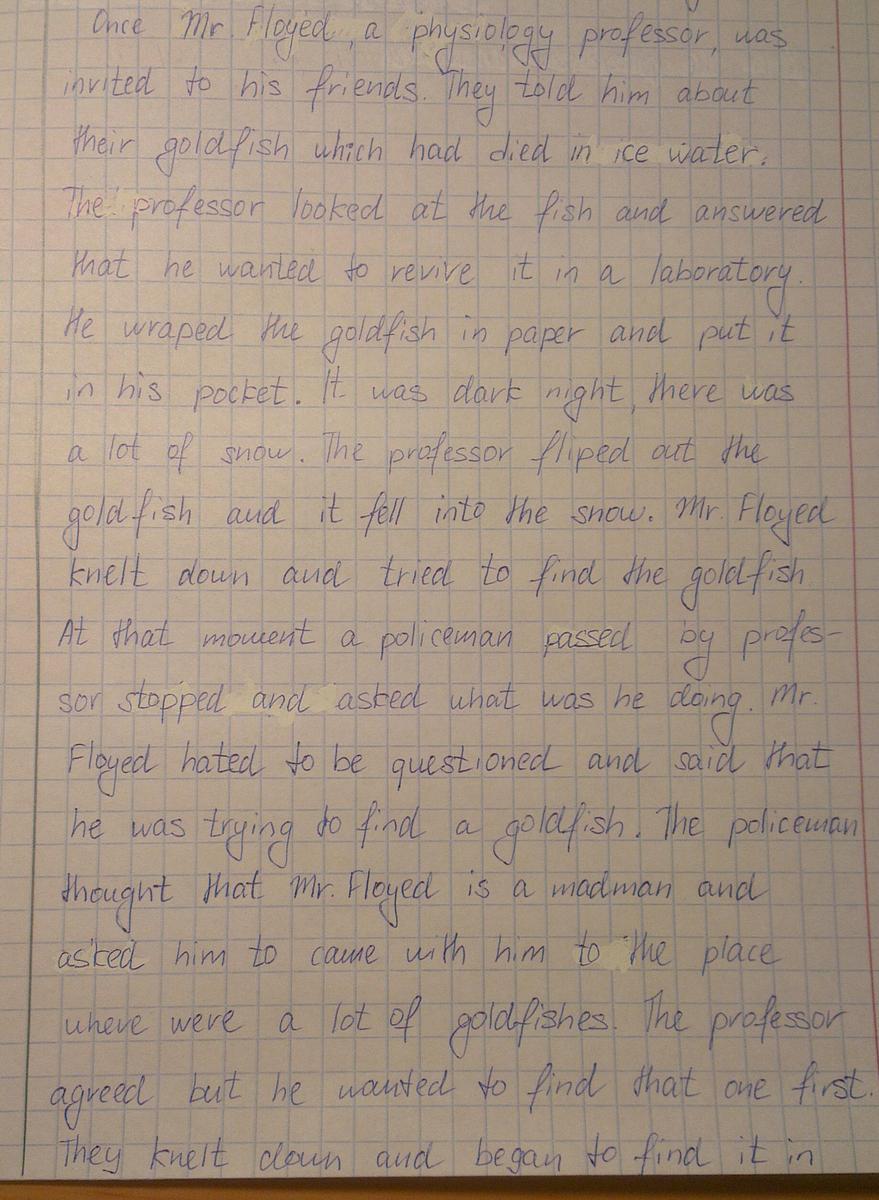 Once Mr. Floyed, a physiology professor, was
invited to his friends. They told him about
their goldfish which had died in ice water.
The professor looked at the fish and answered
that he wanted to revive it in a laboratory.
He wraped the goldfish in paper and put it
in his pocket. It was dark night, there was
a lot of snow. The professor fliped out the
goldfish and it fell into the snow. Mr. Floyed
knelt down and tried to find the goldfish
At that moment a policeman passed by profes-
sor stopped and asked what was he doing. Mr.
Floyed hated to be questioned and said that
he was trying to find a goldfish. The policeman
thought that Mr. Floyed is a madman and
asked him to came with him to the place
where were a lot of goldfishes. The professor
agreed but he wanted to find that one first.
They knelt down and began to find it in